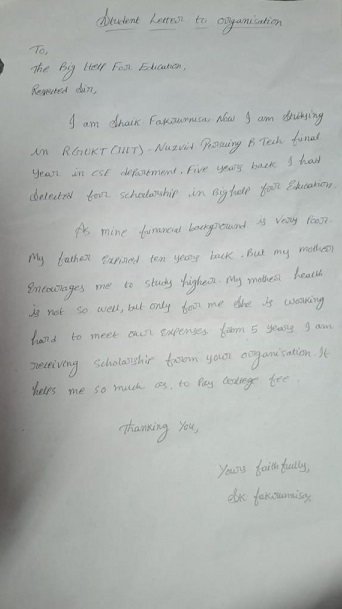 Student Letter to organisation
To,
The Big Help For Education,
Respected sir,
I am Shaik Fakrunnisa Now I am studying
in RGUKT (IIIT) - Nuzvid Pursuing B Tech final
year in CSE department. Five years back I had
selected for scholarship in Bighelp for Education.
As mine financial background is very Poor.
My father Expired ten years back. But my mother
Encourages me to study higher. My mother health
is not so well, but only for me she is working
hard to meet our expenses from 5 years I am
receiving scholarship from your organisation. It
helps me so much as, to Pay college fee.
Thanking You,
Yours faithfully,
SK. fakrunnisa,